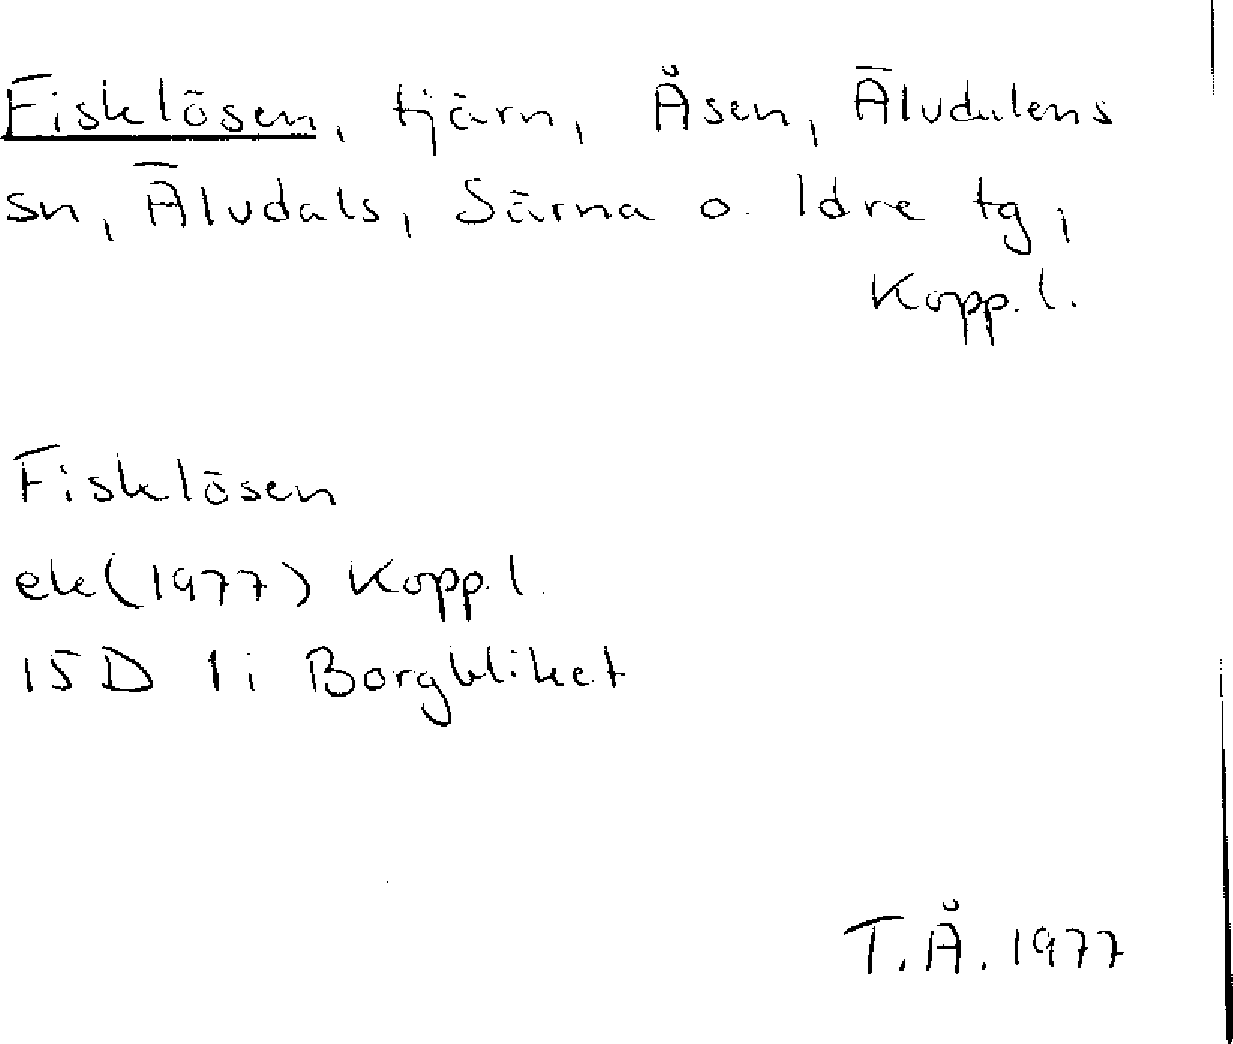 Fisklösen, tjärn, Åsen, Älvdalens
sn, Älvdals, Särna o. Idre tg,
Kopp. l.
Fisklösen
ek (1977) Kopp. l.
15 D 1i Borgbliket
T. Å. 1977